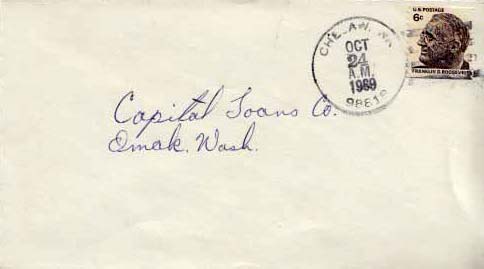 U.S. POSTAGE
6c
FRANKLIN D. ROOSEVELT
OCT
24
A.M.
1969
98816
Capital Loans Co.
Omak, Wash.